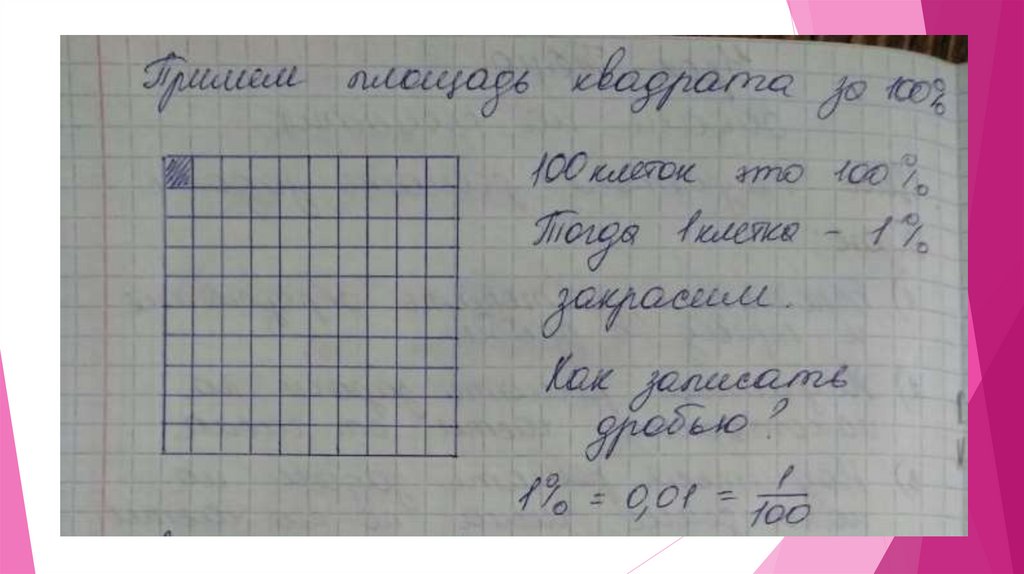 Примем площадь квадрата за 100%
100 клеток это 100%
Тогда 1 клетка - 1%
закрасим.
Как записать
дробью?
1% = 0,01 = 1/100